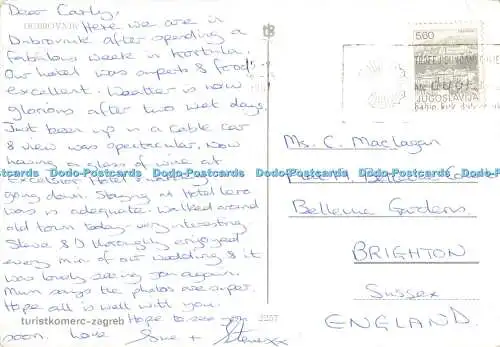 Dear Carly,
DUBROVNIK
Here we are in
Dubrovnik after spending a
fabulous week in Korcula.
Our hotel was superb & food
excellent. Weather is now
glorious after two wet days.
Just been up in a cable car
& view was spectacular. Now
having a glass of wine at
Excelsior Hotel
going down. Staying at Hotel
is adequate. Walked around
old town today - very interesting
Steve & I thoroughly enjoyed
every min of our wedding & it
was lovely seeing you again.
Mum says the photos are super.
Hope all is well with you.
Hope to see you
soon. Love Sue + Steve xx
turistkomerc-zagreb
5.60
JUGOSLAVIJA
Ms. C. Maclagan
Bellevue Gardens,
BRIGHTON
SUSSEX
ENGLAND.
Dodo-Postcards Dodo-Postcards Dodo-Postcards Dodo-Postcards